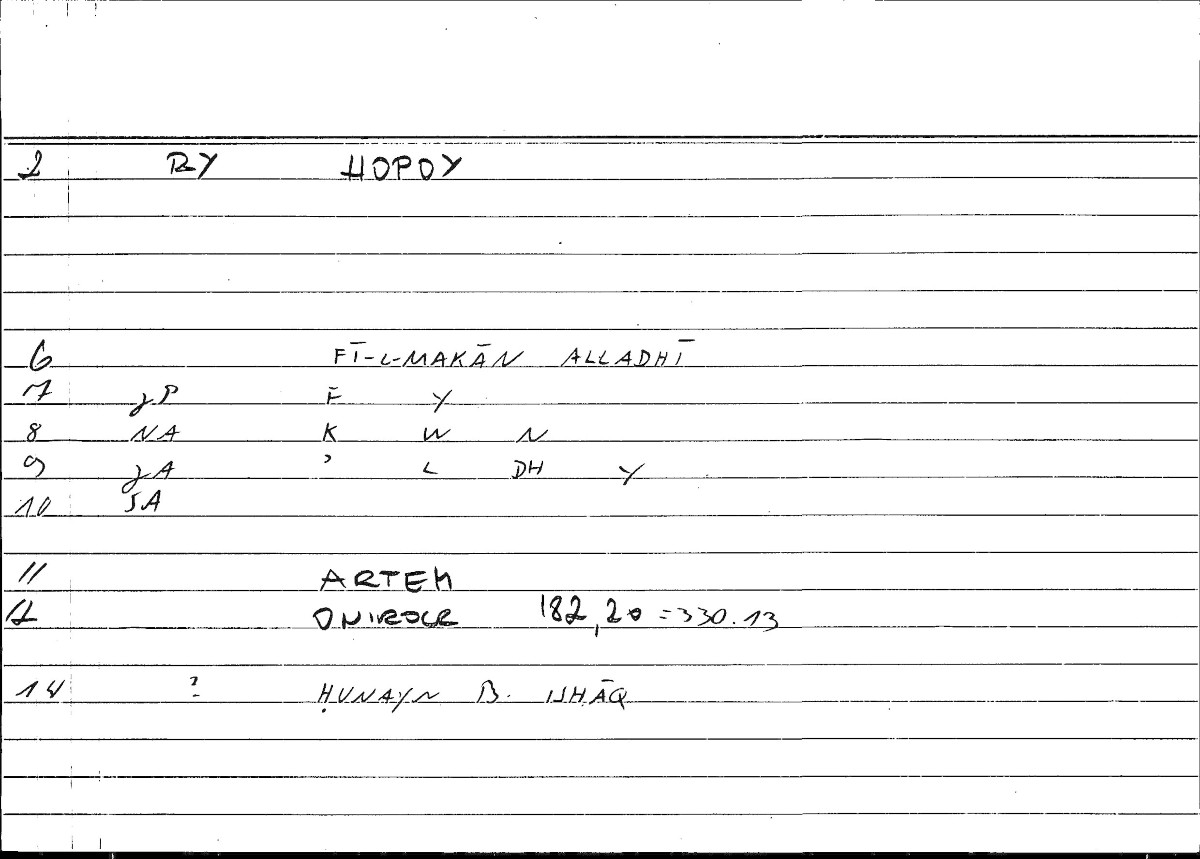 2 RY HOPOY
6 FĪ-L-MAKĀN ALLADHĪ
7 gP F Y
8 NA K W N
9 gA ʾ L DH Y
10 SA
11 ARTEM
12 ONIROCR 182,20 = 330.13
14 ? ḤUNAYN B. ISHĀQ